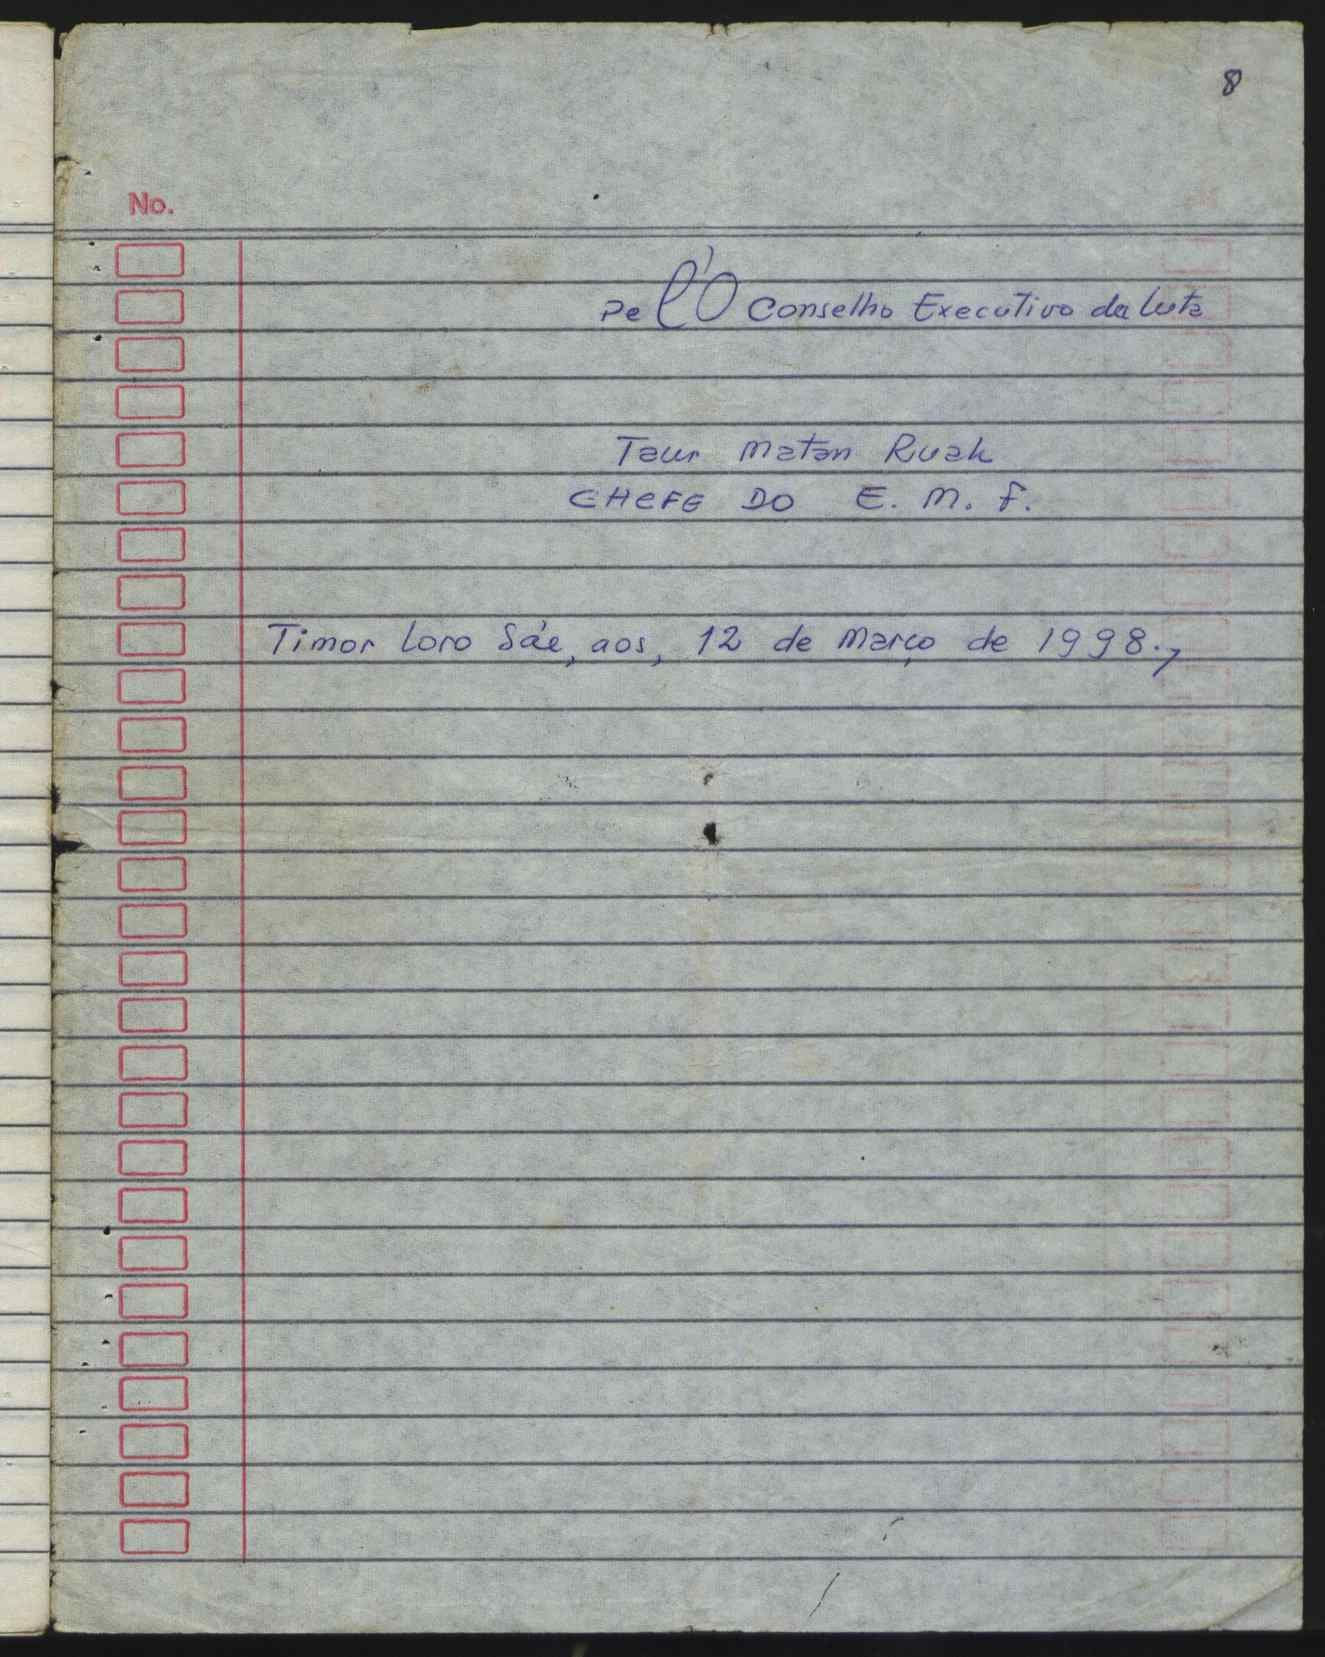 8
No.
Pel'O Conselho Executivo da Luta
Taur Matan Ruak
CHEFE DO E. M. F.
Timor Loro Sáe, aos, 12 de Março de 1998.,